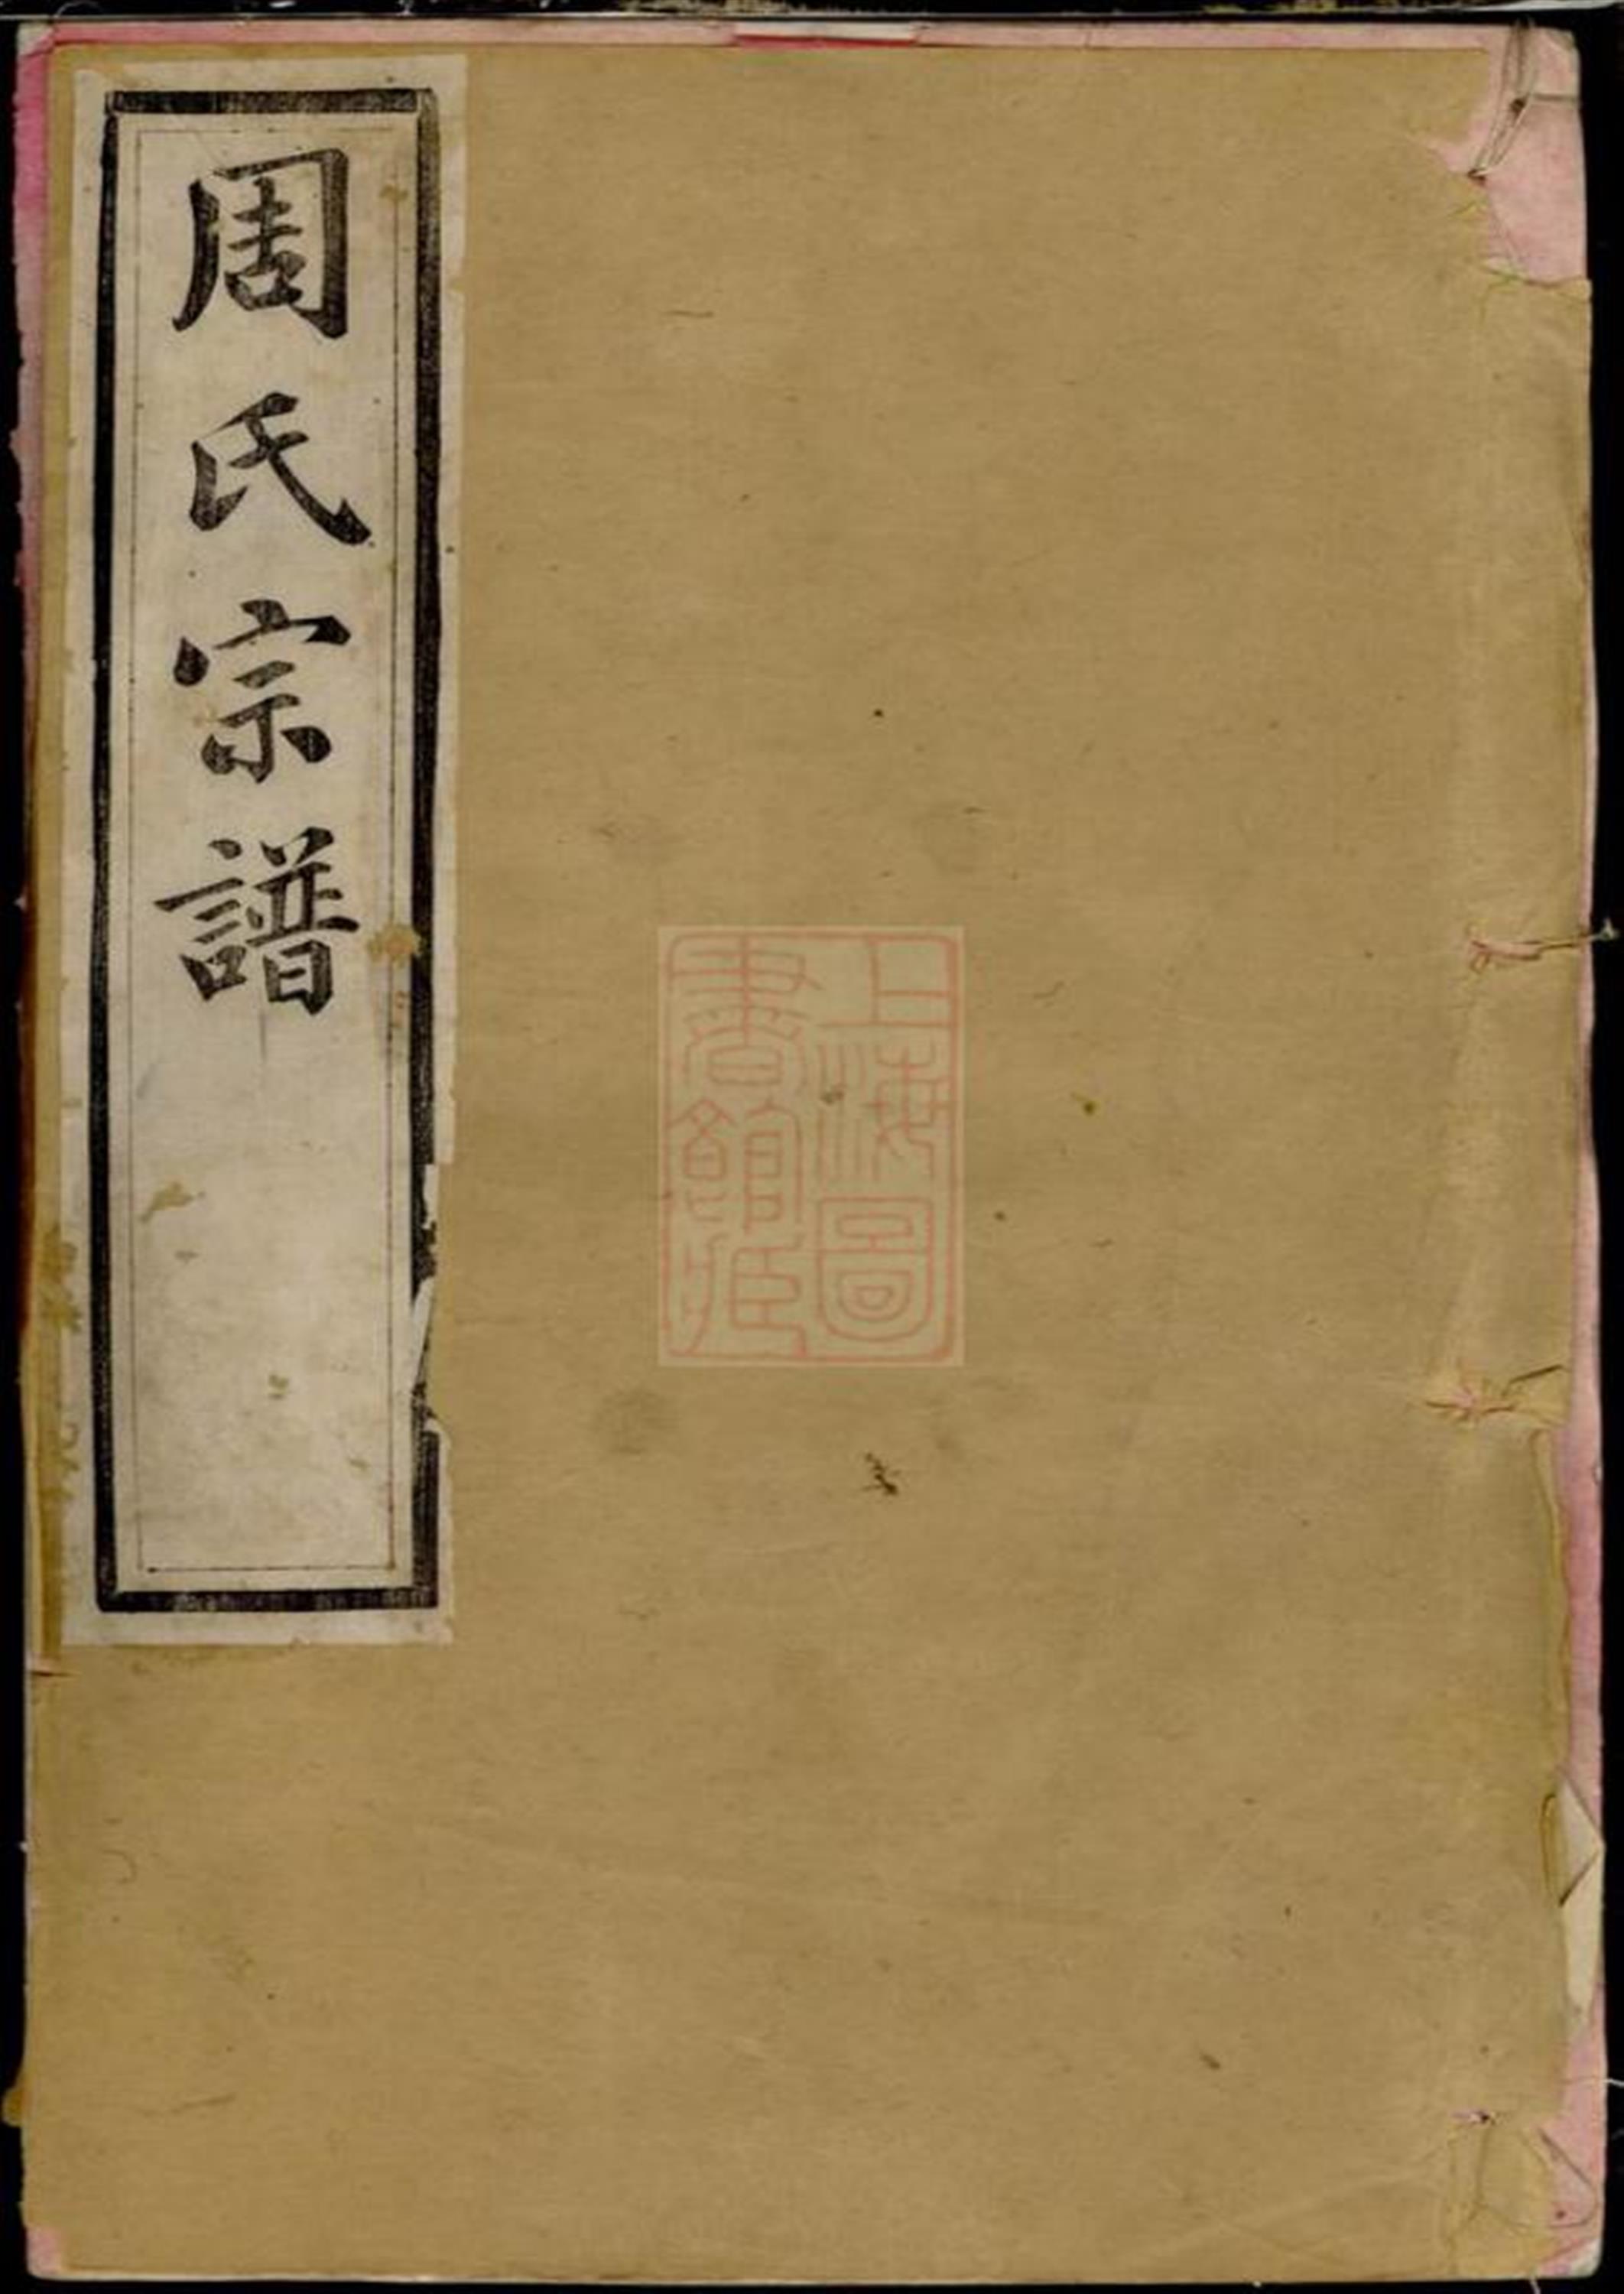 周氏宗譜
上海圖
書館藏